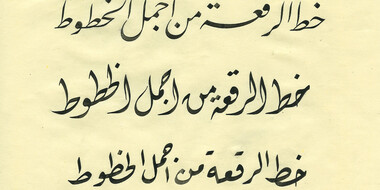 خط الرقعة من أجمل الخطوط
خط الرقعة من اجمل الخطوط
خط الرقعة من أجمل الخطوط